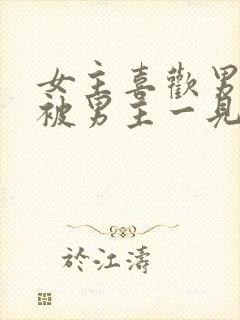 女主喜歡男
被男主一見
於江濤